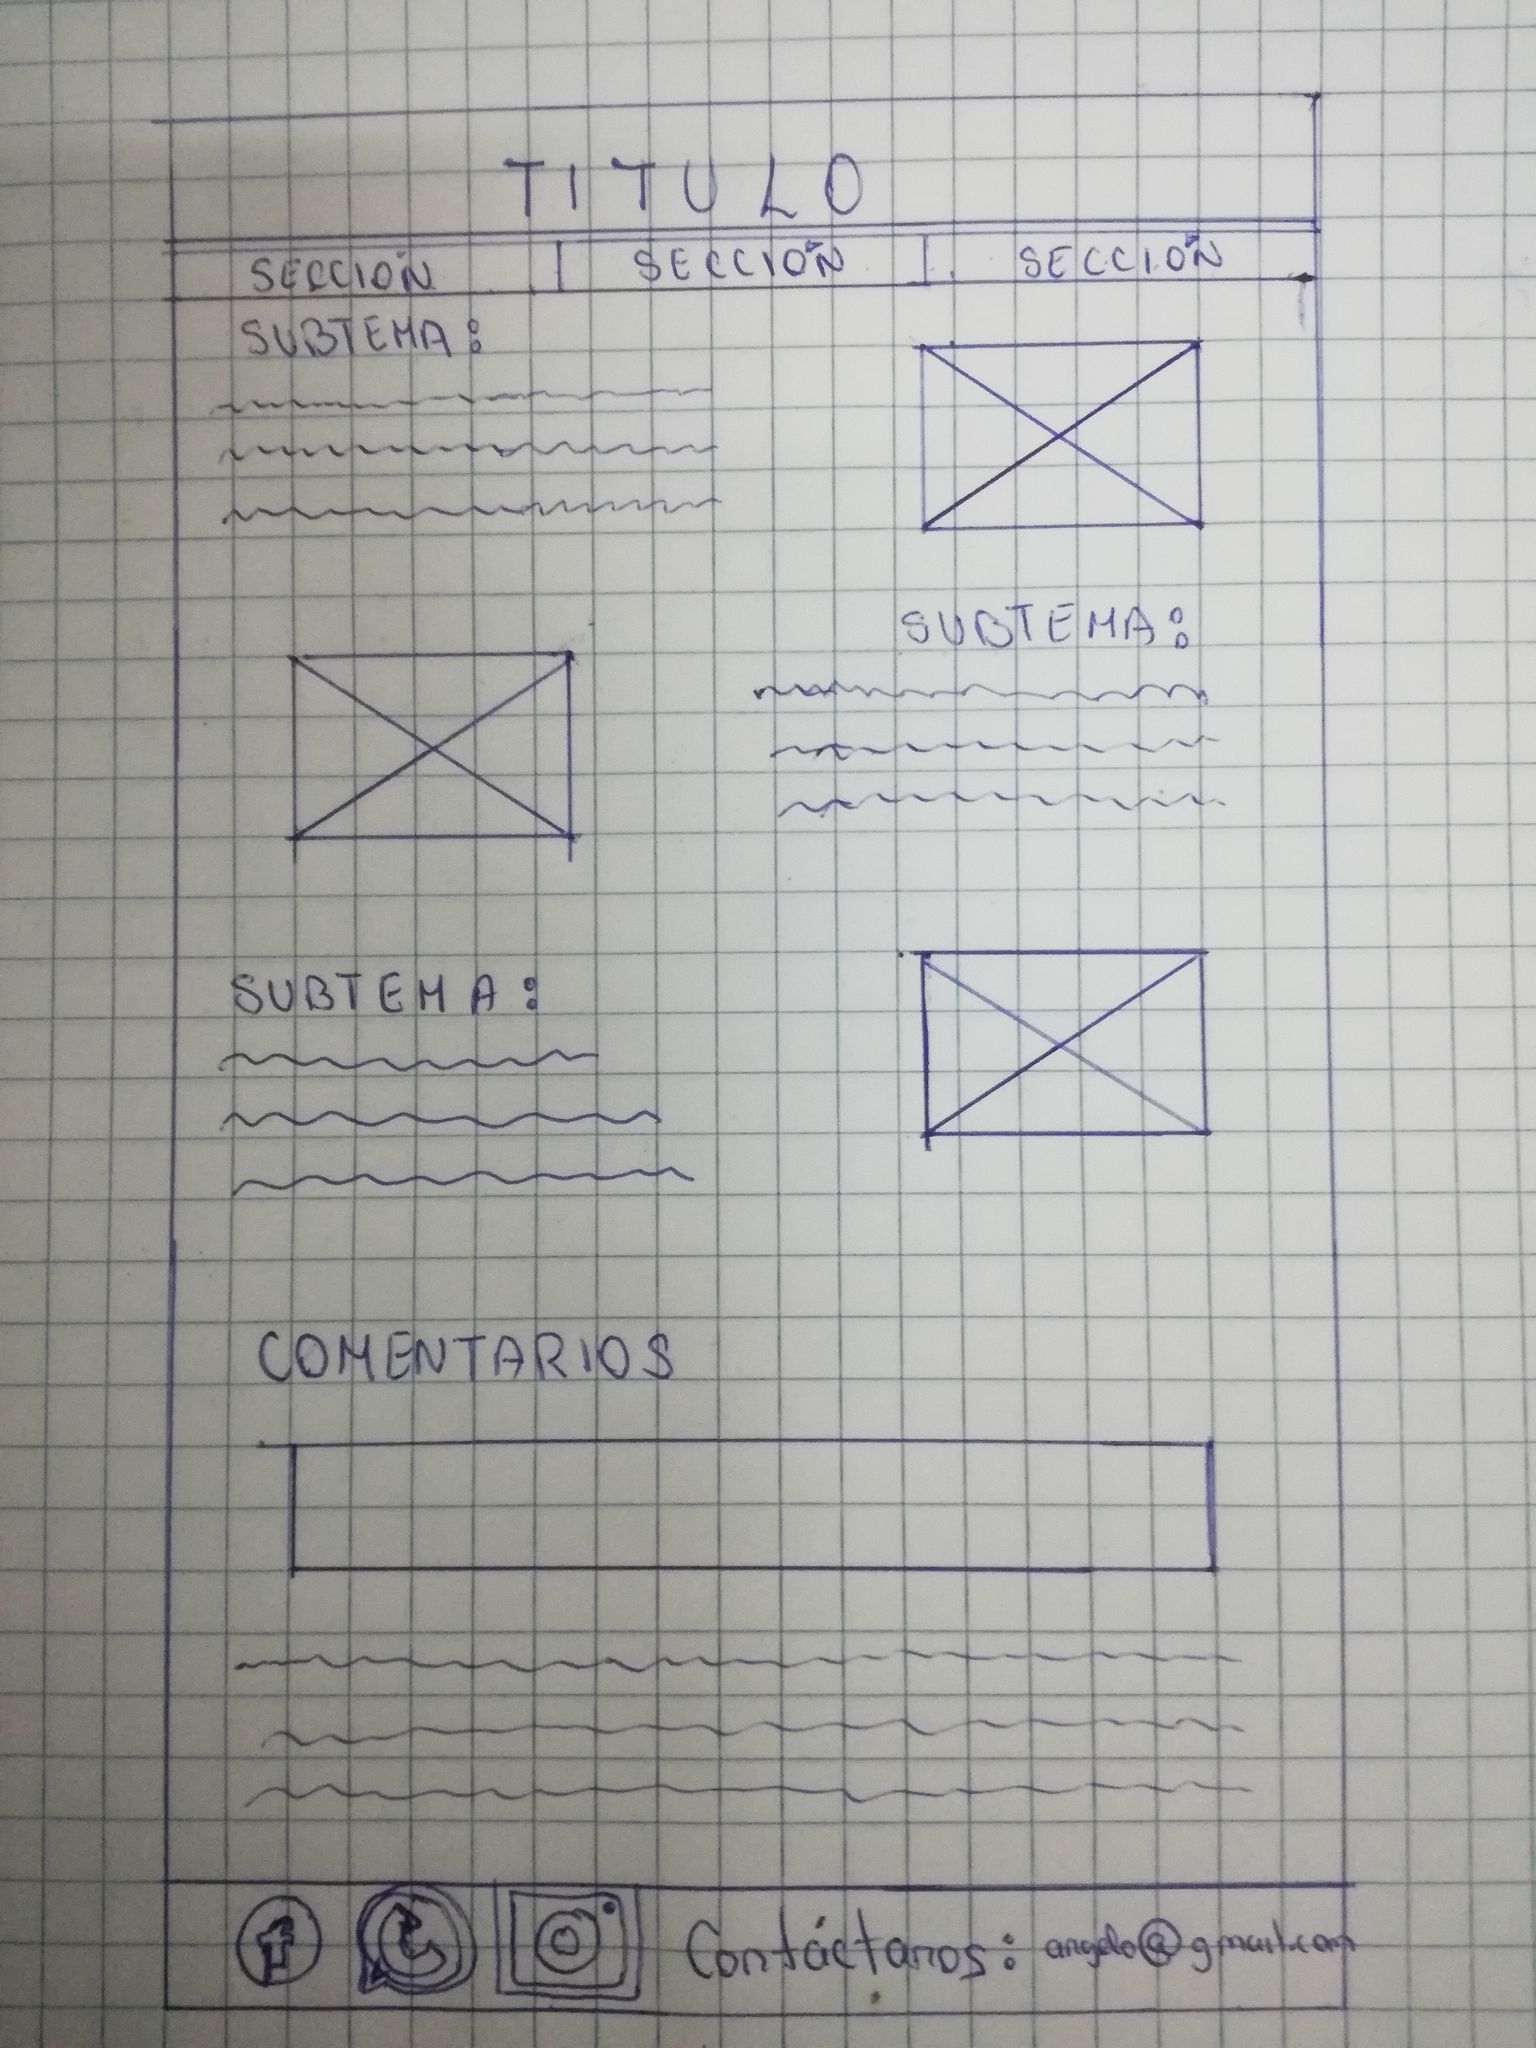 TITULO
SECCIÓN SECCIÓN SECCIÓN
SUBTEMA:
SUBTEMA:
SUBTEMA:
COMENTARIOS
Contáctanos: angelo@gmail.com